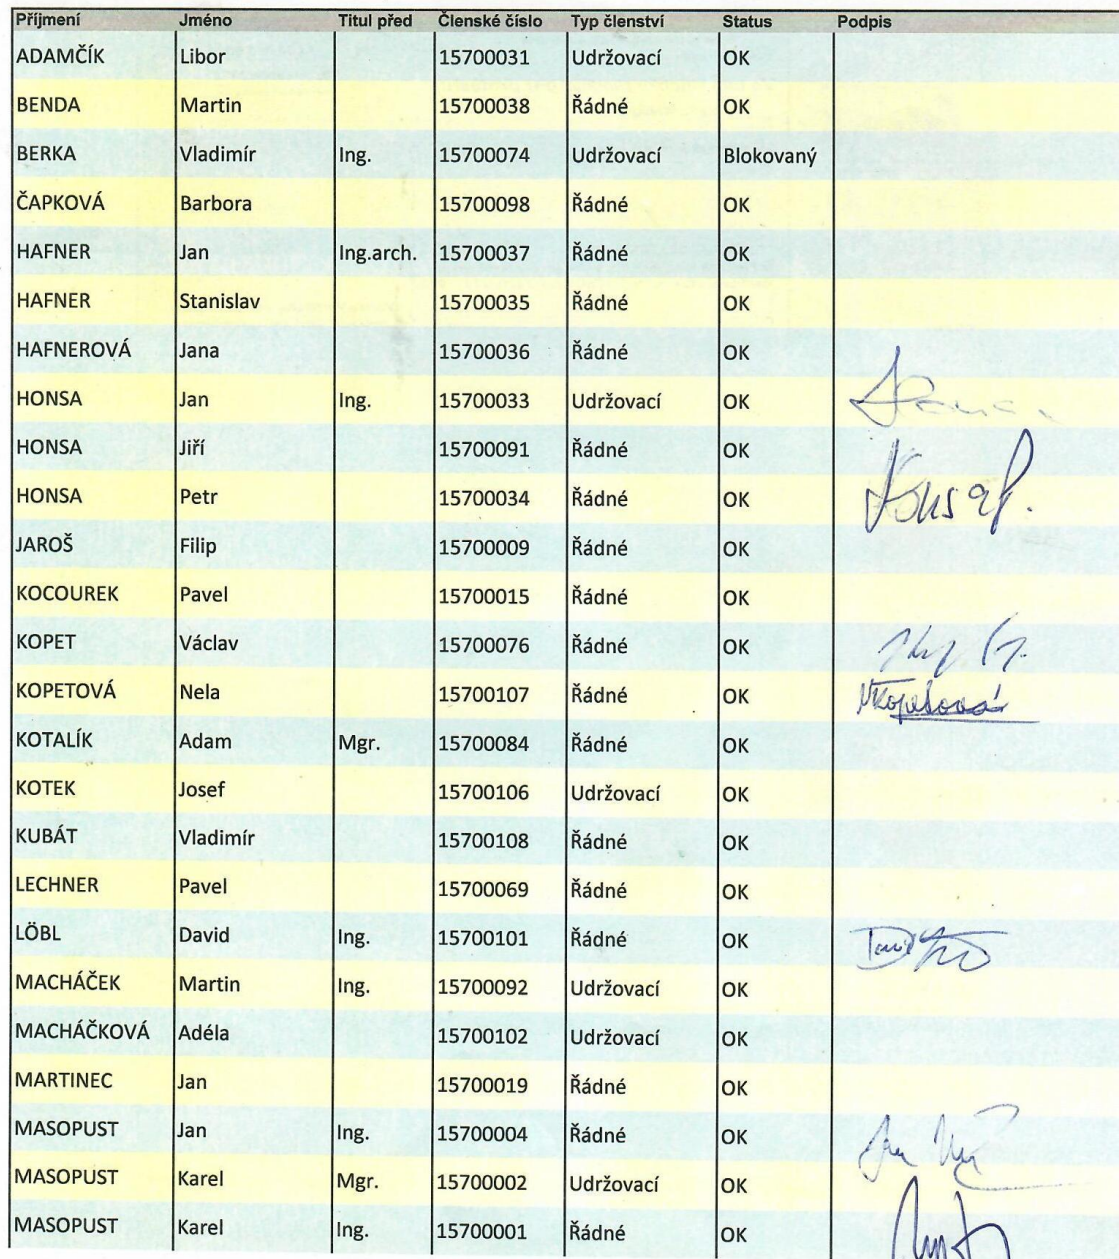 Příjmení Jméno Titul před Členské číslo Typ členství Status Podpis
ADAMČÍK Libor 15700031 Udržovací OK
BENDA Martin 15700038 Řádné OK
BERKA Vladimír Ing. 15700074 Udržovací Blokovaný
ČAPKOVÁ Barbora 15700098 Řádné OK
HAFNER Jan Ing.arch. 15700037 Řádné OK
HAFNER Stanislav 15700035 Řádné OK
HAFNEROVÁ Jana 15700036 Řádné OK
HONSA Jan Ing. 15700033 Udržovací OK
HONSA Jiří 15700091 Řádné OK
HONSA Petr 15700034 Řádné OK
JAROŠ Filip 15700009 Řádné OK
KOCOUREK Pavel 15700015 Řádné OK
KOPET Václav 15700076 Řádné OK
KOPETOVÁ Nela 15700107 Řádné OK NKopetová
KOTALÍK Adam Mgr. 15700084 Řádné OK
KOTEK Josef 15700106 Udržovací OK
KUBÁT Vladimír 15700108 Řádné OK
LECHNER Pavel 15700069 Řádné OK
LÖBL David Ing. 15700101 Řádné OK
MACHÁČEK Martin Ing. 15700092 Udržovací OK
MACHÁČKOVÁ Adéla 15700102 Udržovací OK
MARTINEC Jan 15700019 Řádné OK
MASOPUST Jan Ing. 15700004 Řádné OK
MASOPUST Karel Mgr. 15700002 Udržovací OK
MASOPUST Karel Ing. 15700001 Řádné OK